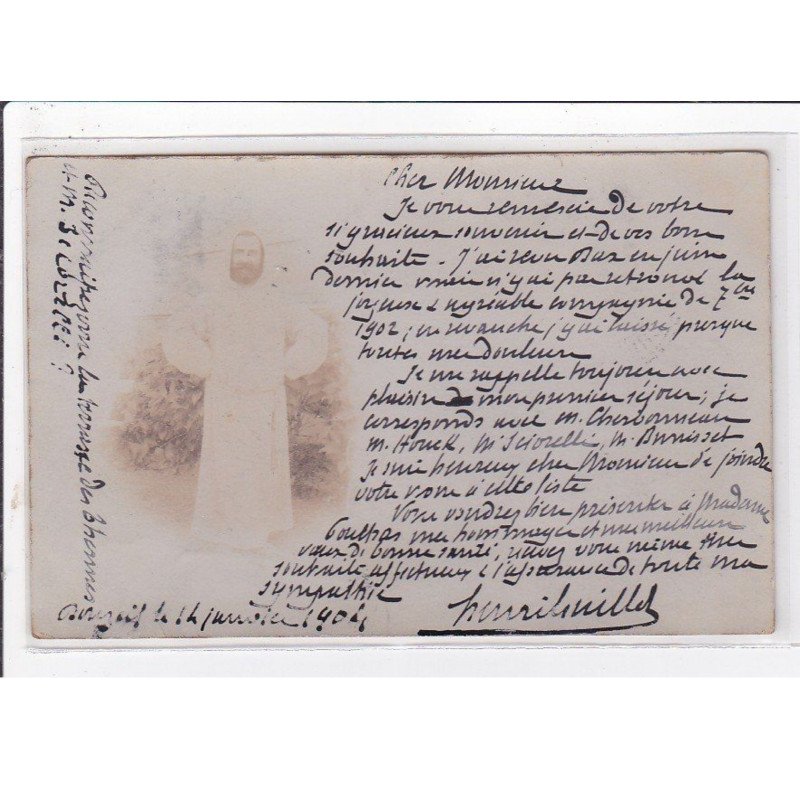 Cher Monsieur
Je vous remercie de votre
si gracieux souvenir et de vos bons
souhaits. J'ai revu Dax en juin
dernier mais n'y ai pas retrouvé la
joyeuse & agréable compagnie de 7bre
1902; en revanche j'y ai laissé presque
toutes mes douleurs
Je me rappelle toujours avec
plaisir de mon premier séjour; je
corresponds avec M. Charbonneau
M. Houck, M. M. Bunisset
Je suis heureux cher Monsieur de joindre
votre nom à cette liste
Vous voudrez bien présenter à Madame
mes hommages et mes meilleurs
vœux de bonne santé, recevez vous même mes
souhaits affectueux & l'assurance de toute ma
sympathie
le 14 janvier 1904
la terrasse des Thermes